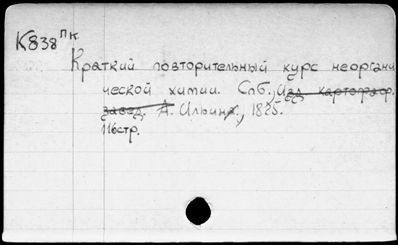 К838 пк
Краткий повторительный курс неоргани
ческой химии. Спб., Изд. картограф.
завед. А. Ильин, 1885.
116стр.